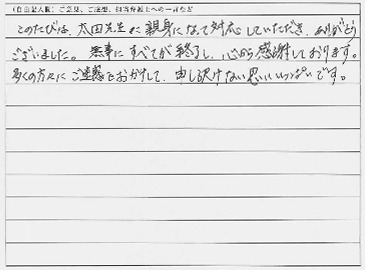 (自由記入欄) ご意見、ご感想、担当弁護士への一言など
このたびは、太田先生に親身になって対応していただき、ありがとう
ございました。無事にすべてが終了し、心から感謝しております。
多くの方々にご迷惑をおかけして、申し訳ない思いでいっぱいです。